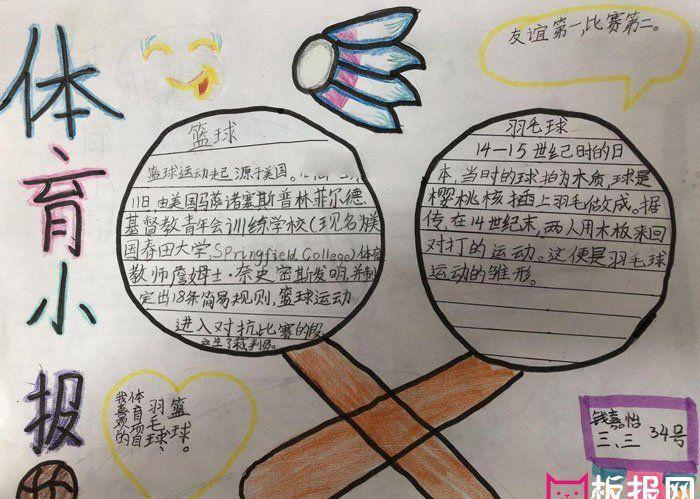 体育小报
友谊第一,比赛第二。
篮球
篮球运动起源于美国。
11日由美国马萨诸塞斯普林菲尔德
基督教青年会训练学校(现名为美
国春田大学,Springfield College)体育
教师詹姆士·奈史密斯发明,并制
定出18条简易规则,篮球运动
进入对抗比赛的段
产生了裁判员。
羽毛球
14-15世纪时的日
本,当时的球拍为木质,球是
樱桃核插上羽毛做成。据
传,在14世纪末,两人用木板来回
对打的运动。这便是羽毛球
运动的雏形。
我喜欢的
体育项目
羽毛球、
篮球。
钱嘉怡
三、三 34号
板报网